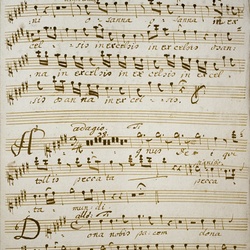 o sanna sanna in ex
cel sis in excelsis in excelsis osan
na in excelsis in excelsis in excel
sis osanna in excel sis
adagio. Tu.
A gnus Dei qui
tollis pecca ta pecca
ta mun di
allo.
D ona nobis pacem dona